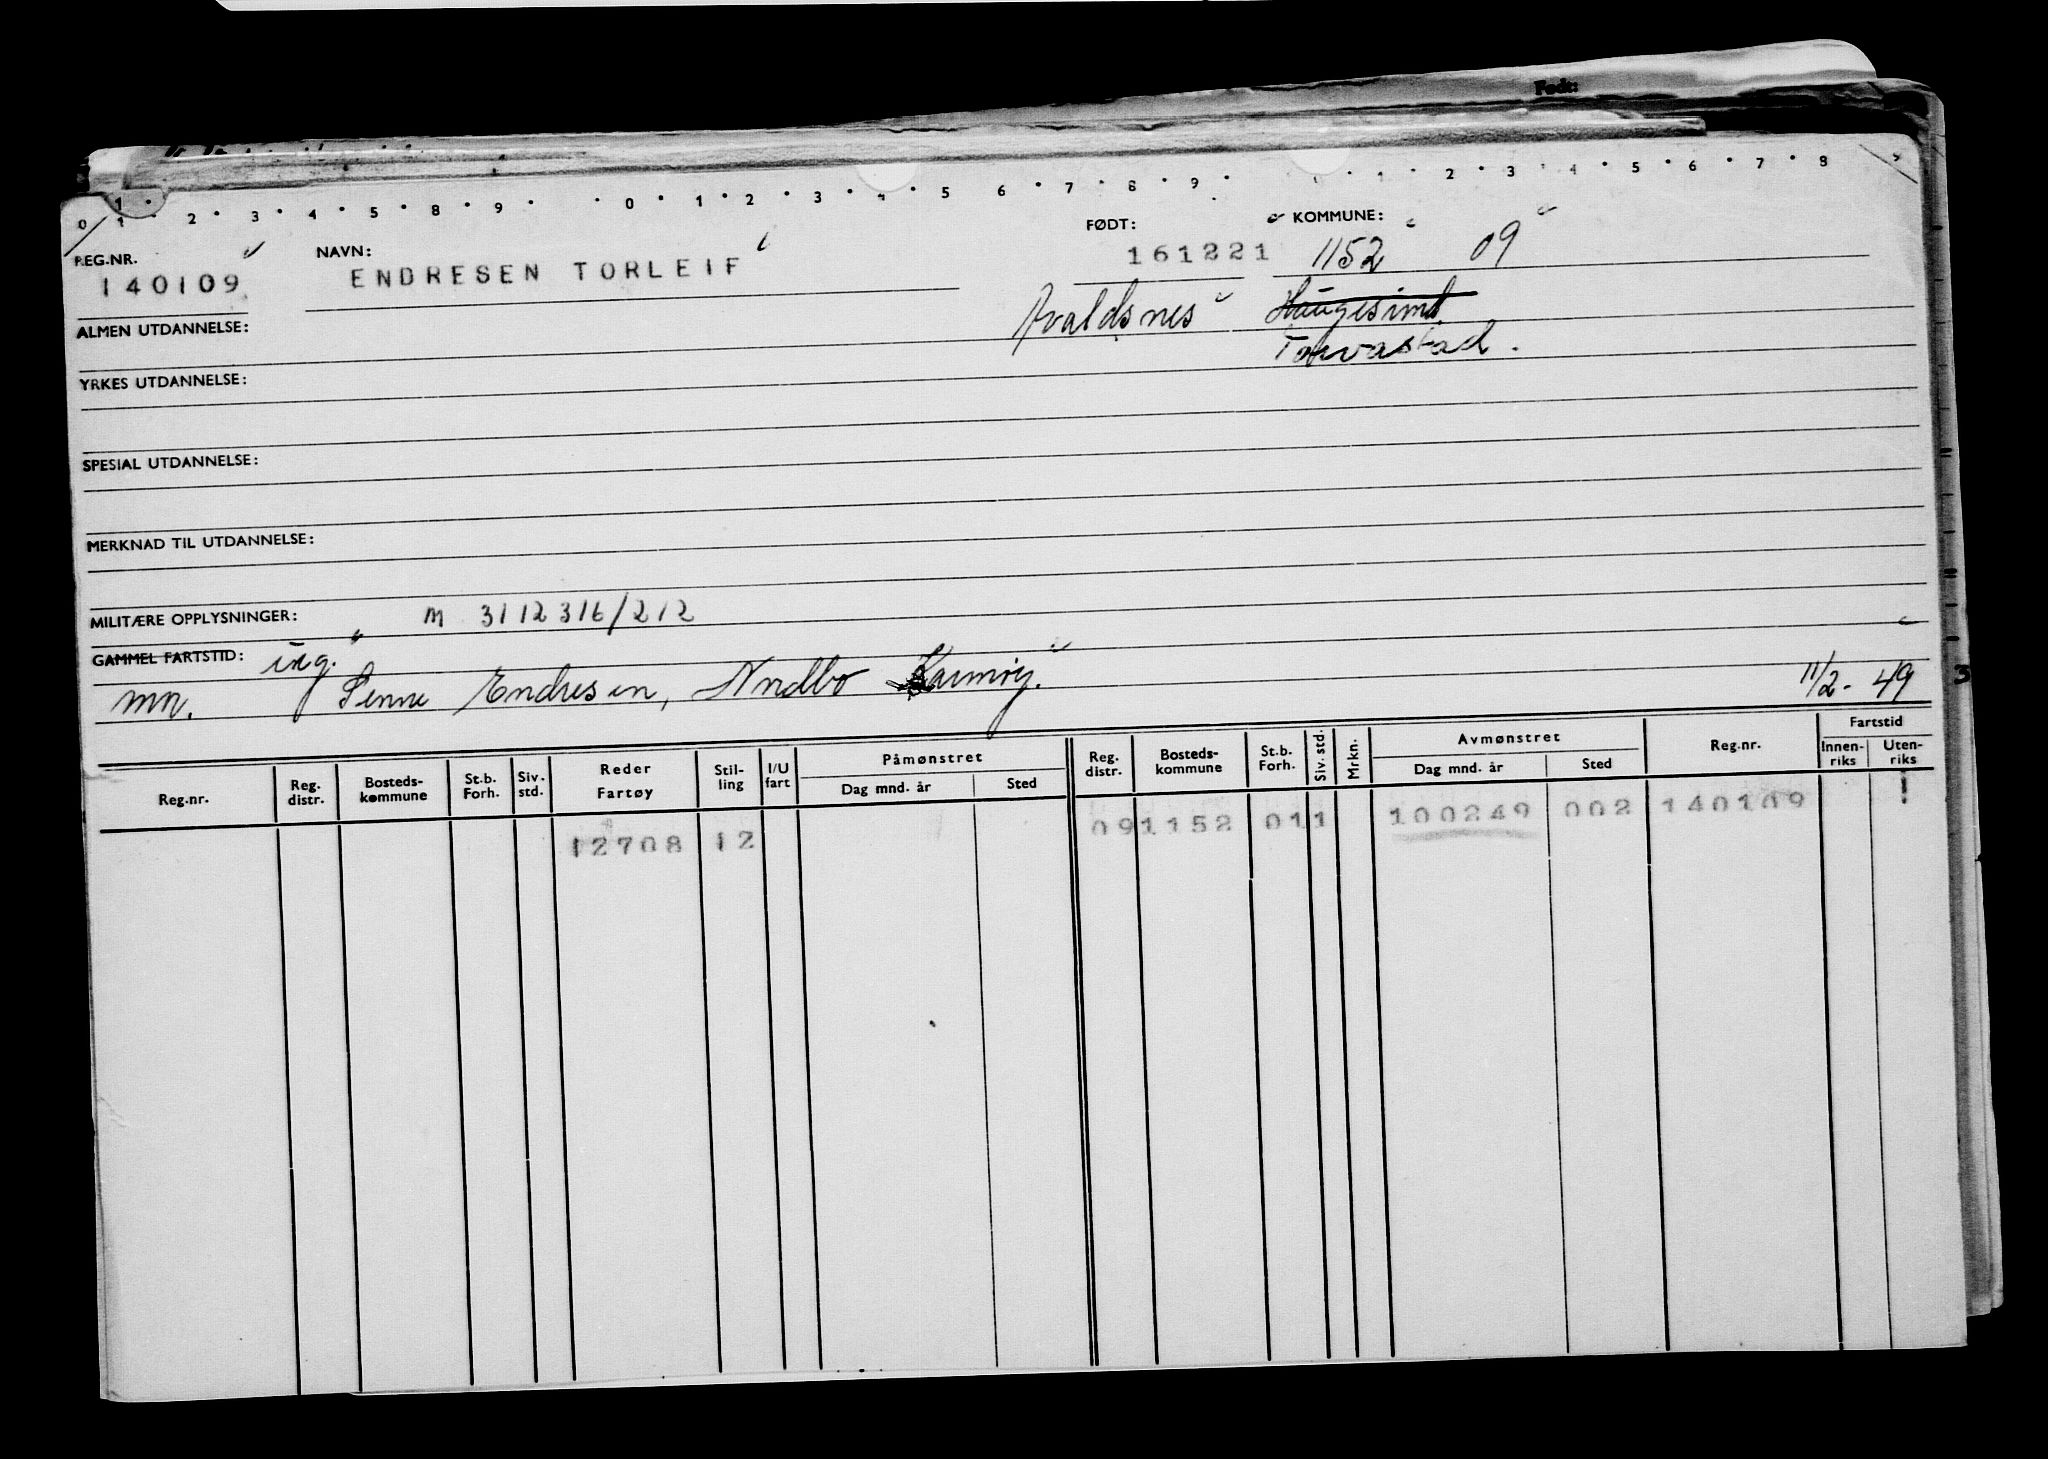 Født:
0 1 1 2 3 4 5 8 9 0 1 2 3 4 5 6 7 8 9 1 2 3 4 5 6 7 8 9
REG.NR. NAVN: FØDT: KOMMUNE:
140109 ENDRESEN TORLEIF 161221 1152 09
ALMEN UTDANNELSE: Avaldsnes Haugesund
Torvastad.
YRKES UTDANNELSE:
SPESIAL UTDANNELSE:
MERKNAD TIL UTDANNELSE:
MILITÆRE OPPLYSNINGER: M 3112316/212
GAMMEL FARTSTID: ug.
mor. Endresen, Nordbø Karmøy. 11/2-49
3
Reg.nr. Reg. distr. Bosteds-kommune St.b. Forh. Siv. std. Reder Fartøy Stil-ling I/U fart Påmønstret Dag mnd. år Sted Reg. distr. Bosteds-kommune St.b. Forh. Siv. std. Mrkn. Avmønstret Dag mnd. år Sted Reg.nr. Fartstid Innen-riks Uten-riks
12708 12 09 1152 01 1 100249 002 140109